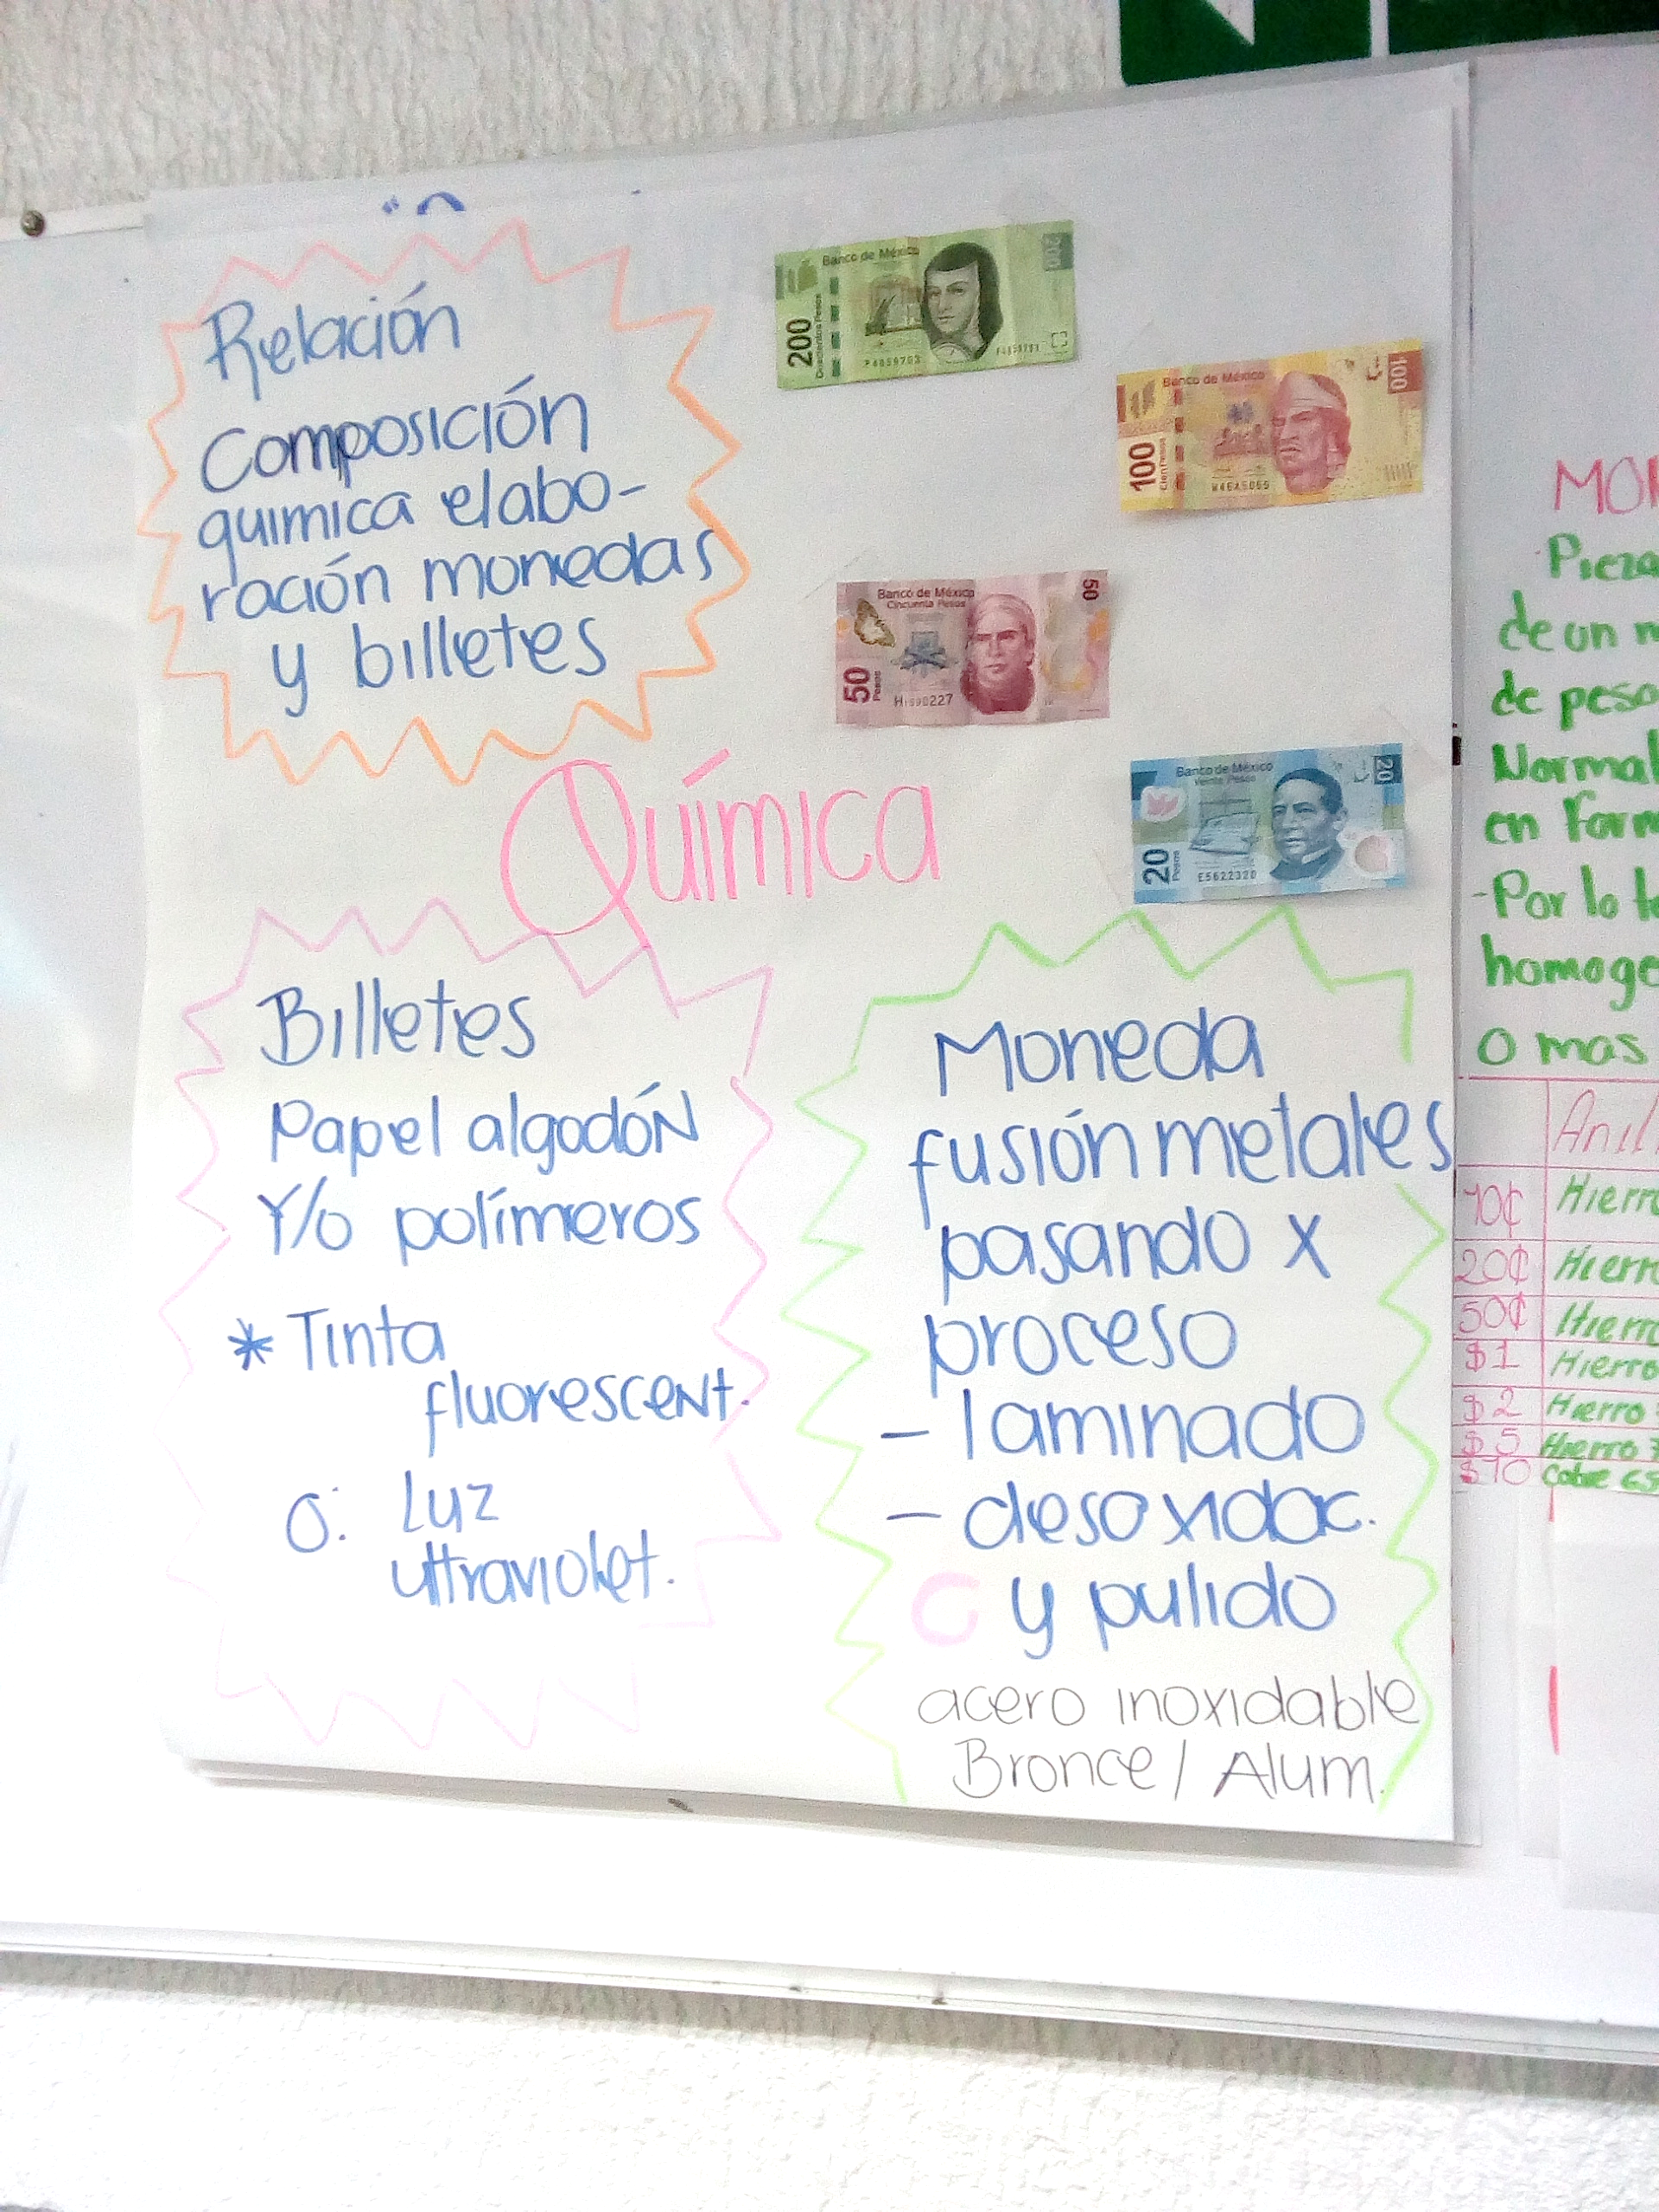 Relación
Composición
química elabo-
ración monedas
y billetes
Banco de México
200
Doscientos Pesos
200
P4859703
Banco de México
100
Cien Pesos
100
Banco de México
Cincuenta Pesos
50
Pesos
50
Banco de México
Veinte Pesos
20
Pesos
20
E5622320
Química
Billetes
Papel algodón
Y/o polímeros
* Tinta
fluorescent.
O: Luz
ultraviolet.
Moneda
fusión metales
pasando x
proceso
- laminado
- desoxidac.
y pulido
acero inoxidable
Bronce / Alum.
de un
de peso
en
-Por lo
o mas
10¢ Hierro
20¢ Hierro
50¢ Hierro
$1 Hierro
$2 Hierro
$5 Hierro
$10 Cobre 65